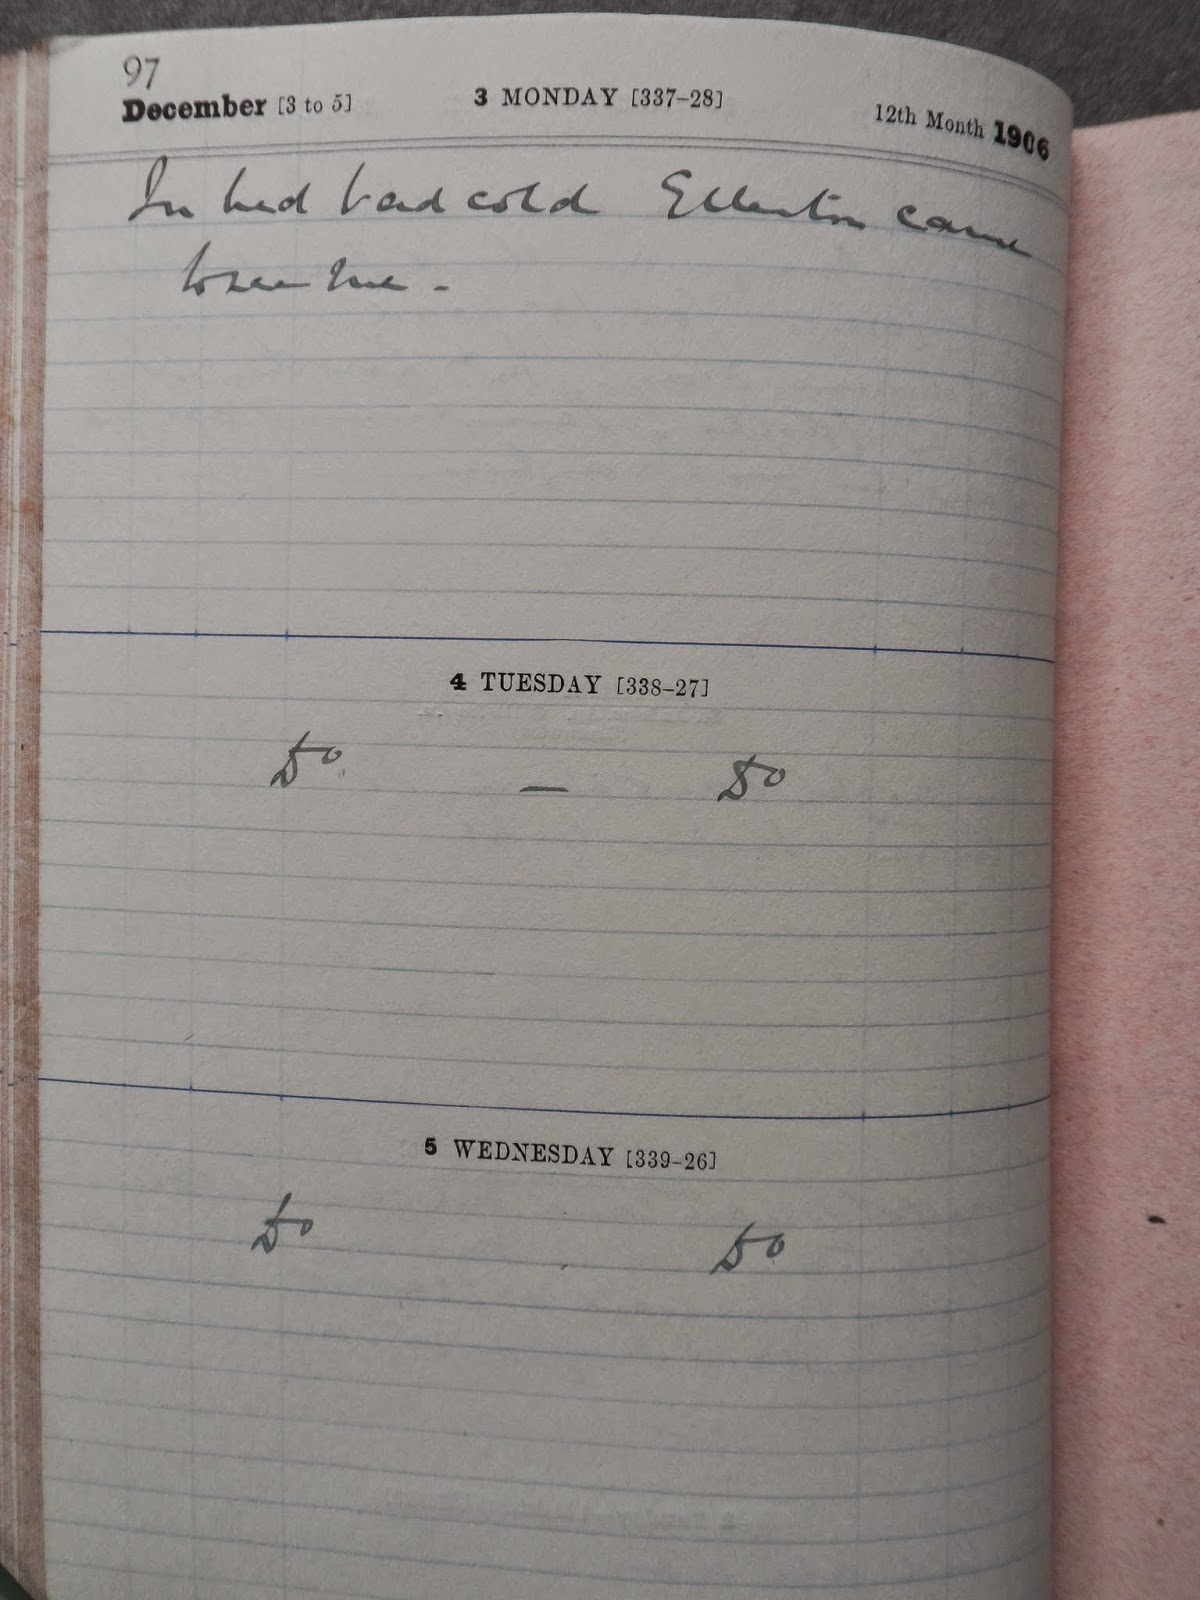 97
December [3 to 5] 3 MONDAY [337–28] 12th Month 1906
In bed bad cold Ellerton came
to see me -
4 TUESDAY [338–27]
Do — Do
5 WEDNESDAY [339–26]
Do Do